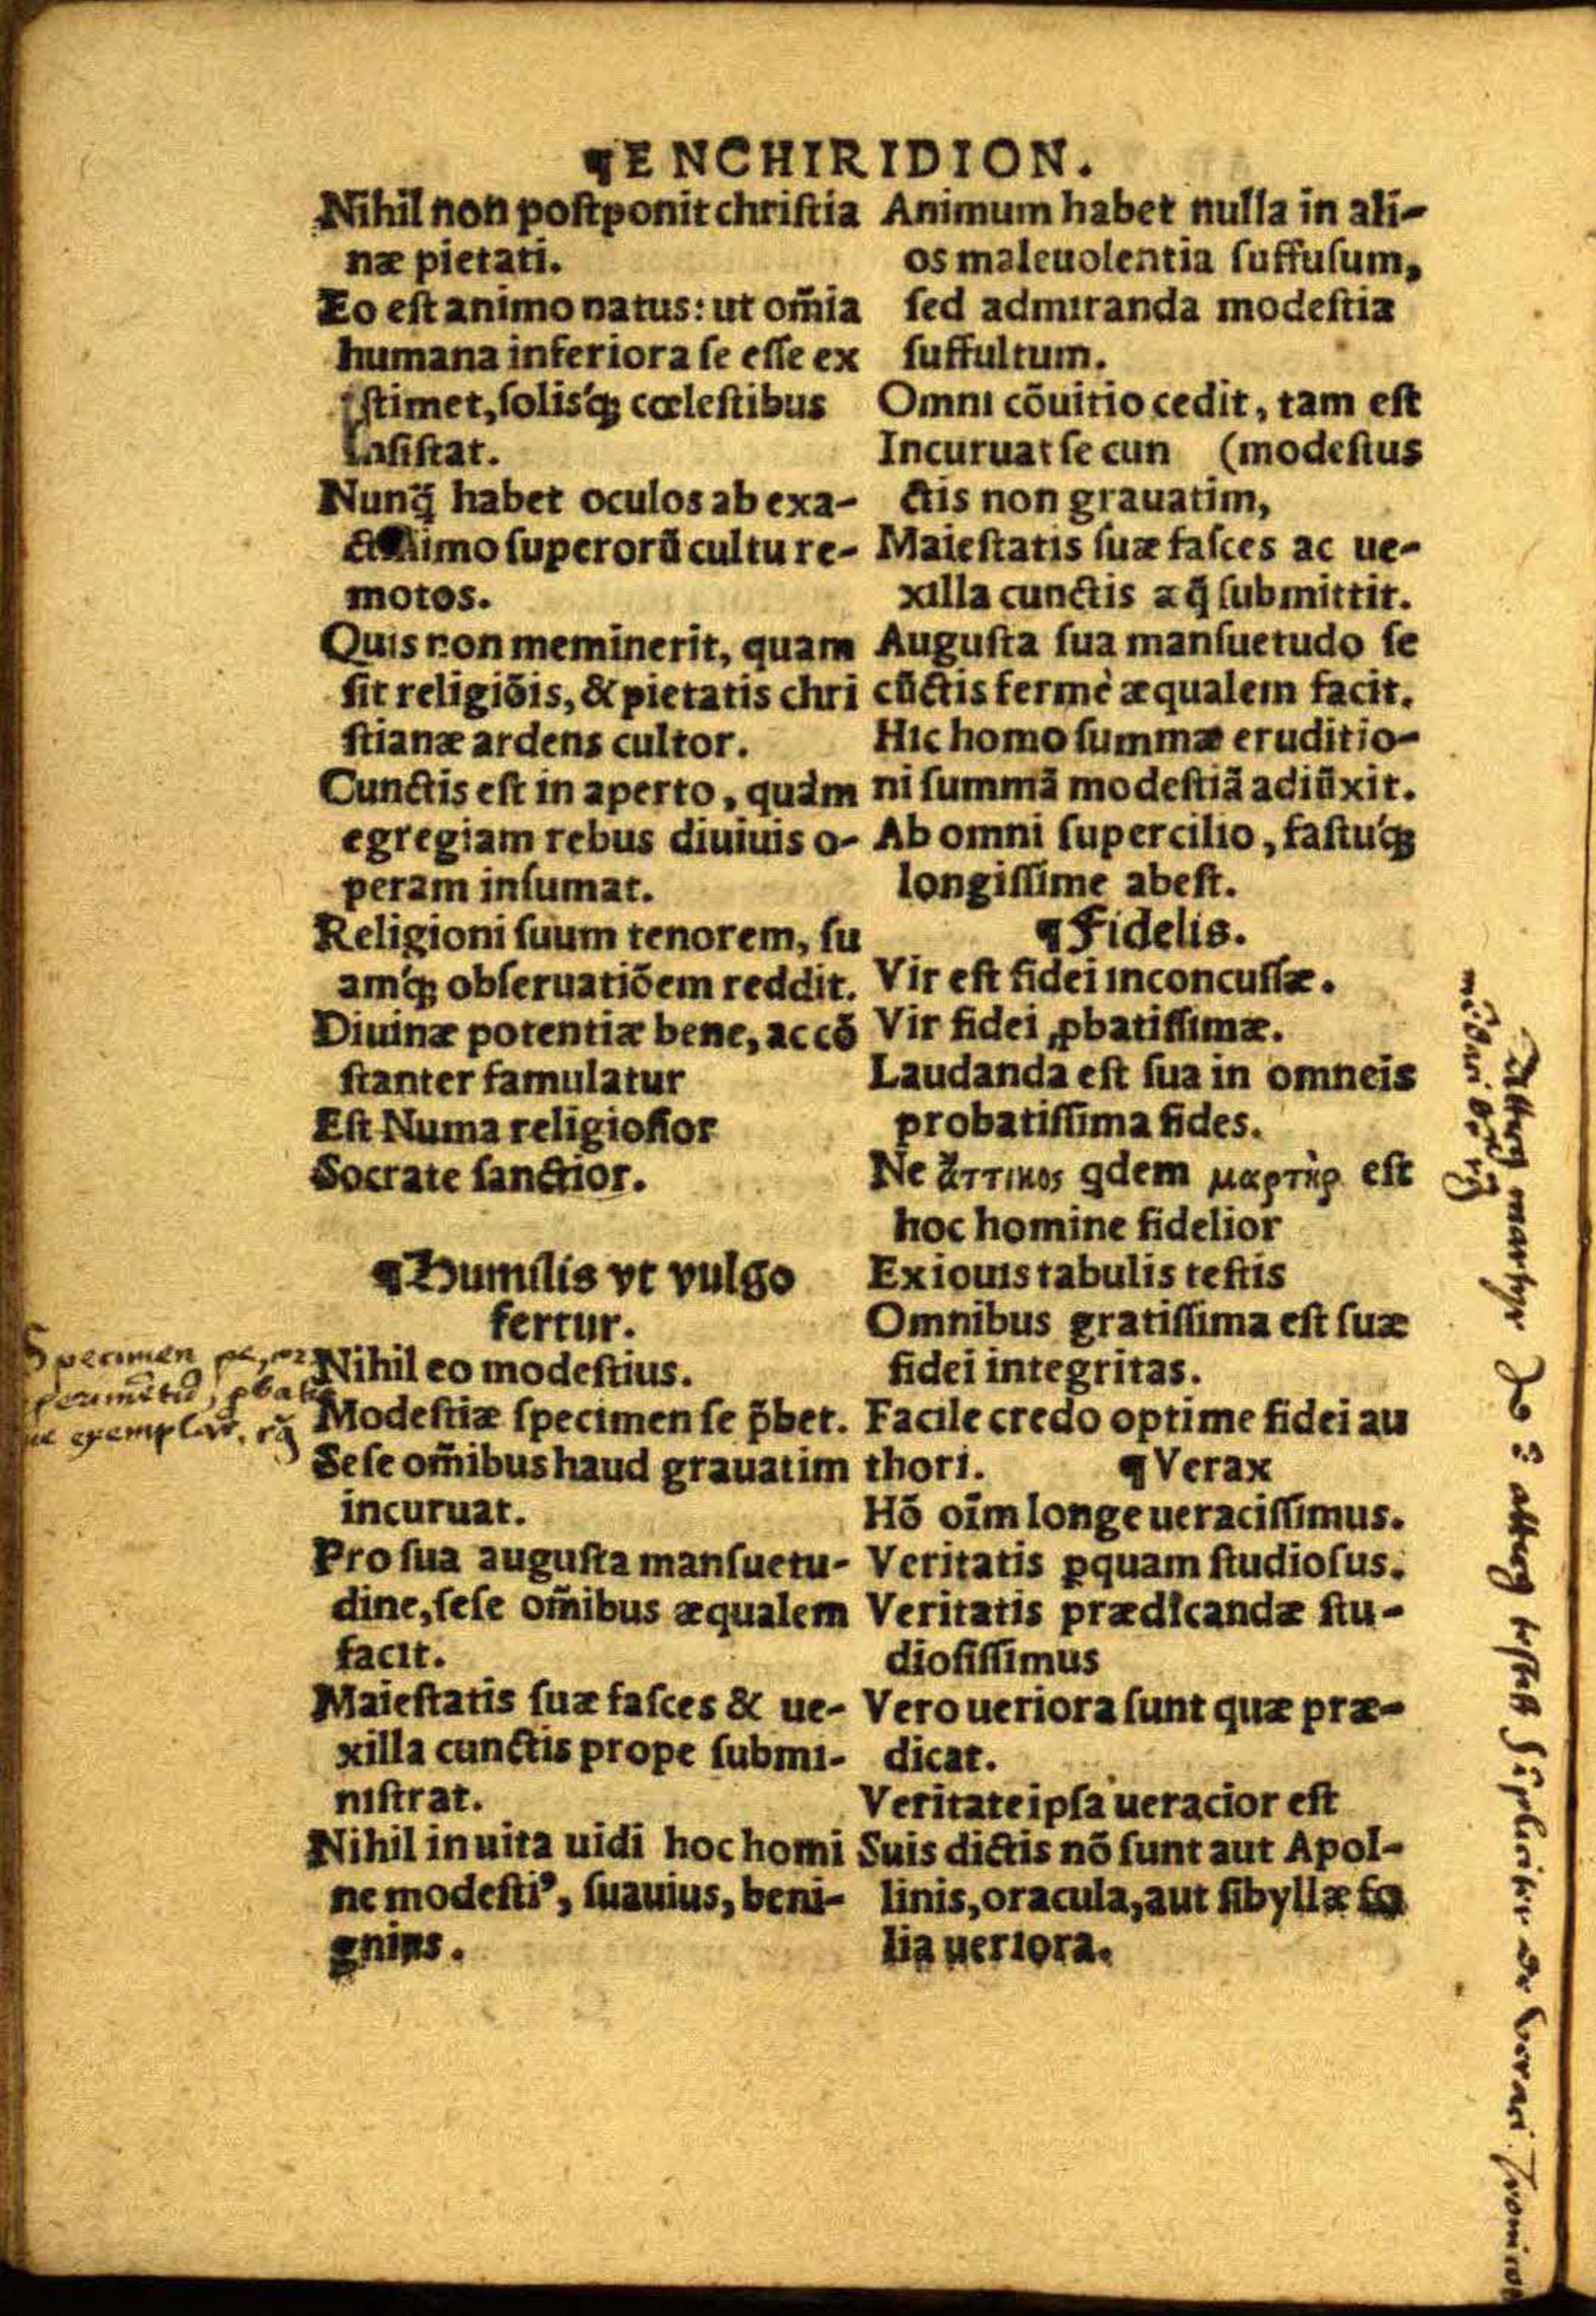 ¶ENCHIRIDION.
Nihil non poſtponit chriſtia
næ pietati.
Eo eſt animo natus: ut om̃ia
humana inferiora ſe eſſe ex
iſtimet, ſolisq́ꝫ cœleſtibus
inſiſtat.
Nunq̃ habet oculos ab exa-
ctiſſimo ſuperorũ cultu re-
motos.
Quis non meminerit, quam
ſit religiõis, & pietatis chri
ſtianæ ardens cultor.
Cunctis eſt in aperto, quàm
egregiam rebus diuiuis o-
peram inſumat.
Religioni ſuum tenorem, ſu
amq́ꝫ obſeruatiõem reddit.
Diuinæ potentiæ bene, ac cõ
ſtanter famulatur
Eſt Numa religioſior
Socrate ſanctior.
¶Humilis vt vulgo
fertur.
Nihil eo modeſtius.
Modeſtiæ ſpecimen ſe p̃bet.
Seſe om̃ibus haud grauatim
incuruat.
Pro ſua auguſta manſuetu-
dine, ſeſe om̃ibus æqualem
facit.
Maieſtatis ſuæ faſces & ue-
xilla cunctis prope ſubmi-
niſtrat.
Nihil in uita uidi hoc homi
ne modeſtiꝰ, ſuauius, beni-
gnius.
Animum habet nulla in ali-
os maleuolentia ſuffuſum,
ſed admiranda modeſtia
ſuffultum.
Omni cõuitio cedit, tam eſt
Incuruat ſe cun (modeſtus
ctis non grauatim,
Maieſtatis ſuæ faſces ac ue-
xilla cunctis æq̃ ſubmittit.
Auguſta ſua manſuetudo ſe
cũctis fermè æqualem facit.
Hic homo ſummæ eruditio-
ni ſummã modeſtiã adiũxit.
Ab omni ſupercilio, faſtuq́ꝫ
longiſſime abeſt.
¶Fidelis.
Vir eſt fidei inconcuſſæ.
Vir fidei ꝓbatiſſimæ.
Laudanda eſt ſua in omneis
probatiſſima fides.
Ne ἄττικος qdem μαρτὴρ eſt
hoc homine fidelior
Ex iouis tabulis teſtis
Omnibus gratiſſima eſt ſuæ
fidei integritas.
Facile credo optime fidei au
thori. ¶Verax
Hõ oĩm longe ueraciſſimus.
Veritatis ꝑquam ſtudioſus.
Veritatis prædicandæ ſtu-
dioſiſſimus
Vero ueriora ſunt quæ præ-
dicat.
Veritate ipſa ueracior eſt
Suis dictis nõ ſunt aut Apol-
linis, oracula, aut ſibyllæ fo
lia ueriora.
Specimen
exemplar
martyr